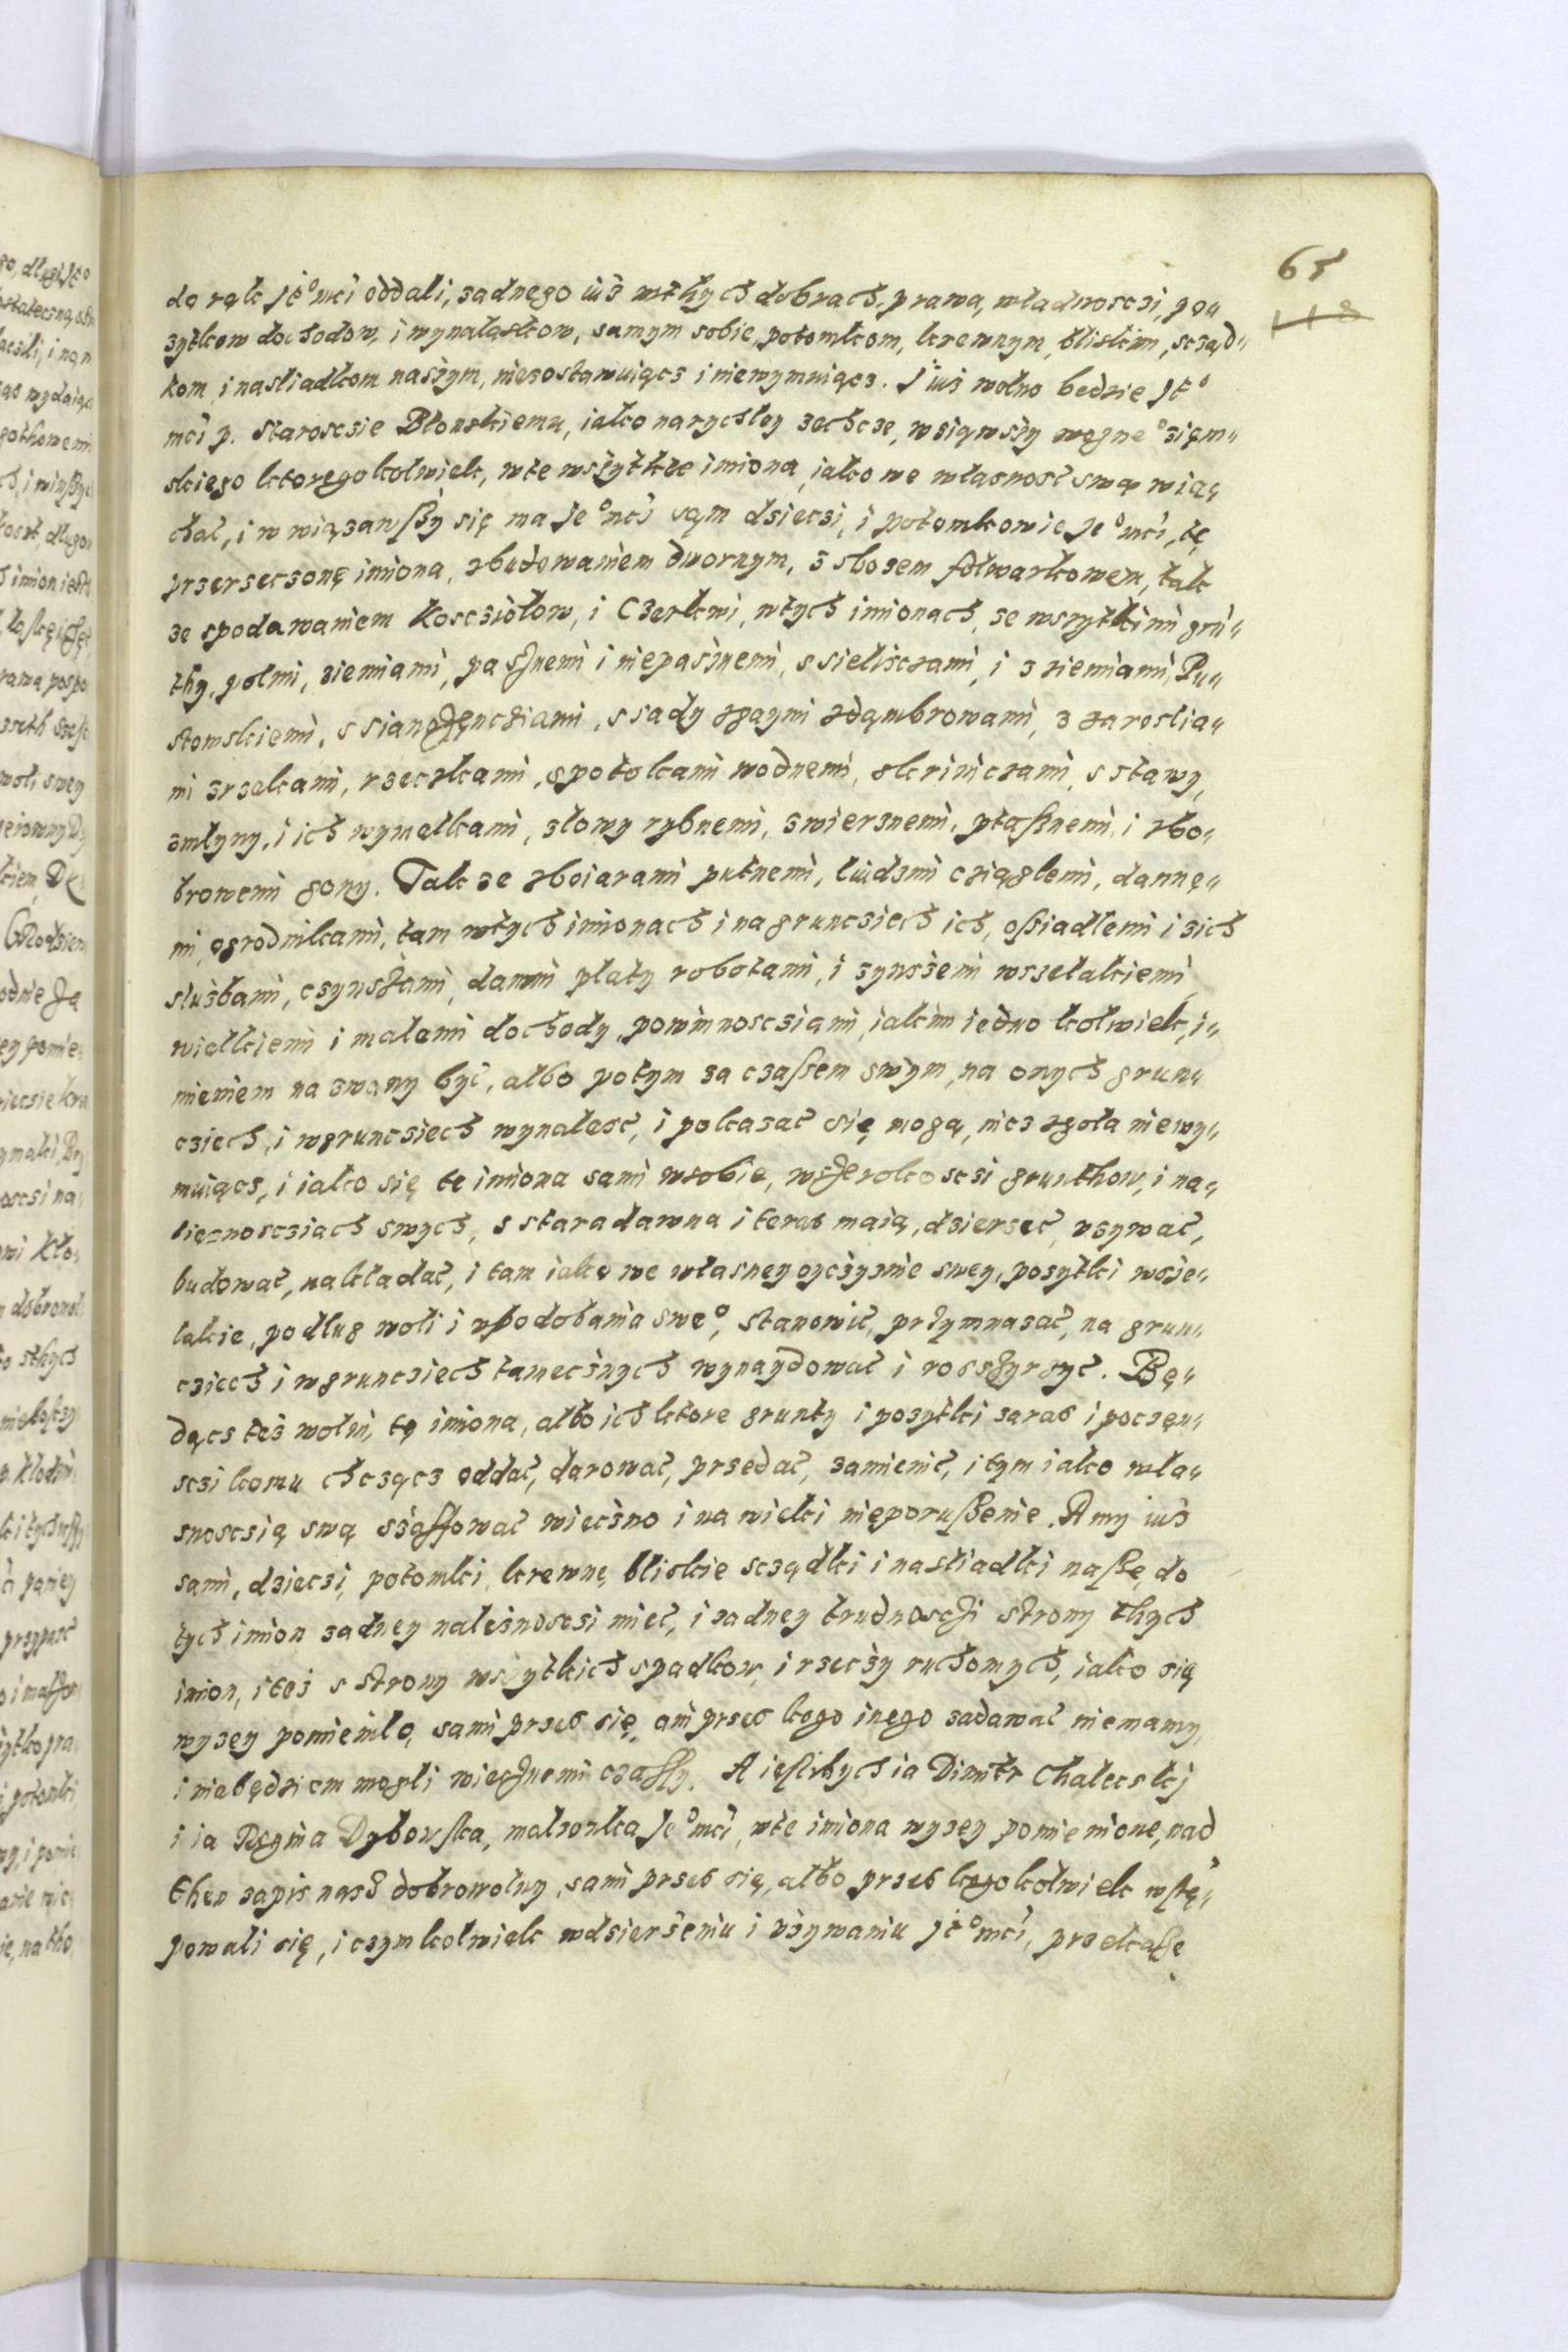 65
118
do rąk Je° mći oddali, zadnego iuż wthych dobrach, prawa, władnoscsi, po„
zytkow dochodow, i wynalaskow, samym sobie, potomkom, krewnym, bliskim, scząd„
kom i nasliadkom naszym, niezostawuiącz i niewymuiącz. Juz wolno bedzie Je°
mći p. Staroscsie Błonskiemu, iako narychley zechcze, wsiąwszy wozne° zięm„
skiego ktoregokolwiek, wte wszytkie imiona, iako we własnosć swą wią„
chać, i w wiązanßy się ma Je° mći sąm dsiecsi, i potomkowie Je° mći, tę
przerzeczonę imiona, zbudowaniem dwornym, s sbozem folwarkowem, tak
ze spodawaniem Kosczsiołow, i Czerkwi, wtych imionach, se wszytkimi gru„
thy, polmi, ziemiami, pasznemi i niepasznemi, s sieliszczami, i z ziemiami, Pu„
stowskiemi, s sianożęncziami, s sady zgaymi zdąmbrowami, z zaroslia„
mi zrzekami, rzeczkami, spotokami wodnemi, skriniczami, s stawy,
zmłyny, i ich wymelkami, złowy rybnemi, zwierznemi, ptaßnemi, i zbo„
browemi gony. Tak ze zboiarami putnemi, ludzmi cziągłemi, dannę„
mi, ogrodnikami, tam wtych imionach i na gruncsiech ich, oßiadłemi i zich
służbami, czynszami, danmi płaty robotami, i zynszemi wszelakiemi
wielkiemi i małemi dochody, powinnoscsiami, iakim iedno kolwiek, i„
mieniem nazwany być, albo potym za czaßem swym, na onych grun„
csiech, i wgruncsiech wynalesć, i pokazać się mogą, nicz zgoła niewy„
muiącz, i iako się te imiona sami wsobie, wszerokoscsi grunthow, i na„
lieznoscsiach swych, s staradawna i teraz maią, dsierzeć, uzywać,
budować, nakładać, i tam iako we własney oyczyznie swey, pozytki wsze„
lakie, podług woli i upodobania swe°, stanowić, przymnazać, na grun„
csiech i wgruncsiech tamecznych wynaydować i rozszyrzyć. Bę„
dącz też wolni, tę imiona, albo ich ktore grunty i pozytki zaraz i poczęn„
scsi komu chcząca oddać, darować, przedać, zamienić, i tym iako wła„
snoscsią swą szaffować wieczno i na wieki nieporußenie. A my iuż
sami, dziecsi, potomki, krewnę, bliskie scządki i nasliadki naßę, do
tych imion zadney nalieżnoscsi mieć, i zadney trudnosczi strony thych
imion, i też s strony wszytkich spadkow, i rzeczy ruchomych, iako się
wyzey pomieniło, sami przez się, ani przez kogo inego zadawać niemamy,
i niebędziem mogli wiecznemi czaßy. A ieslibych ia Dimitr Chaleczkj
i ia Regina Dybowska, malzonka Je° mći, wte imiona wyzey pomienione, nad
then zapis nasz dobrowolny, sami przez się, albo przez kogokolwiek wstę„
powali się, i czymkolwiek wdsierżeniu i używaniu Je° mći, przekaßę